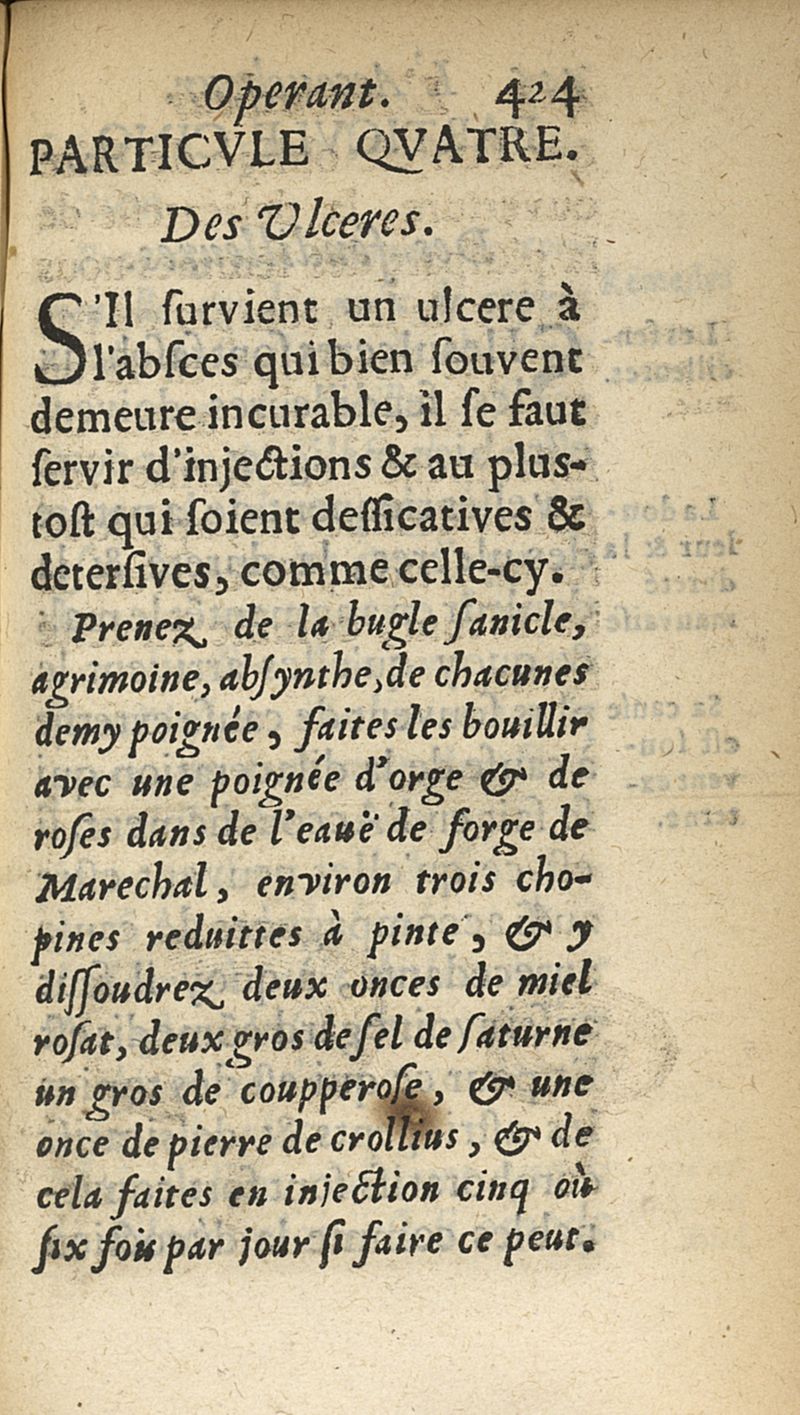 Operant. 424
PARTICVLE QVATRE.
Des Vlceres.
S'Il ſurvient un ulcere à
l'abſces qui bien ſouvent
demeure incurable, il ſe faut
ſervir d'injections & au plus-
toſt qui ſoient deſſicatives &
deterſives, comme celle-cy.
Prenez de la bugle ſanicle,
agrimoine, abſynthe, de chacunes
demy poignée, faites les bouillir
avec une poignée d'orge & de
roſes dans de l'eauë de forge de
Marechal, environ trois cho-
pines reduittes à pinte, & y
diſſoudrez deux onces de miel
roſat, deux gros de ſel de ſaturne
un gros de coupperoſe, & une
once de pierre de crollius, & de
cela faites en injection cinq où
ſix fois par jour ſi faire ce peut.